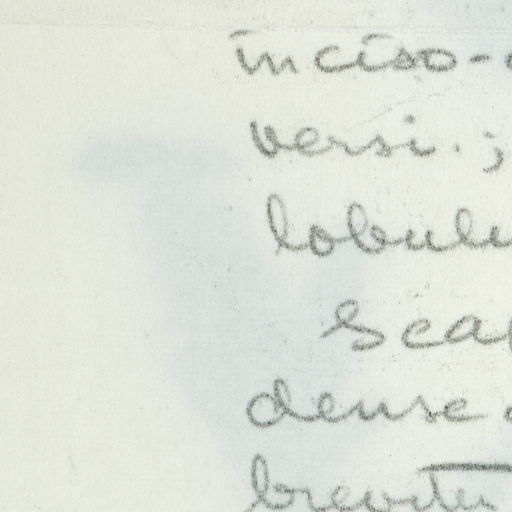 inciso-
versi. ;
lobulu
Sca
dense
breviter